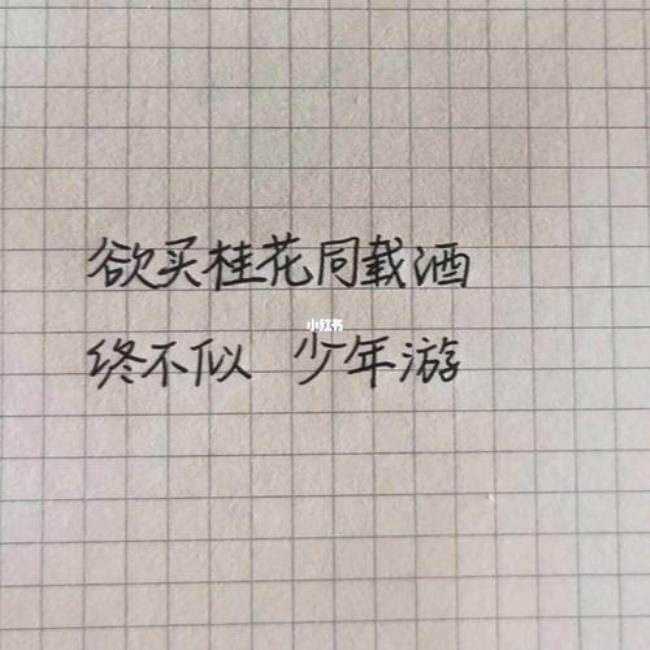 欲买桂花同载酒
小红书
终不似 少年游